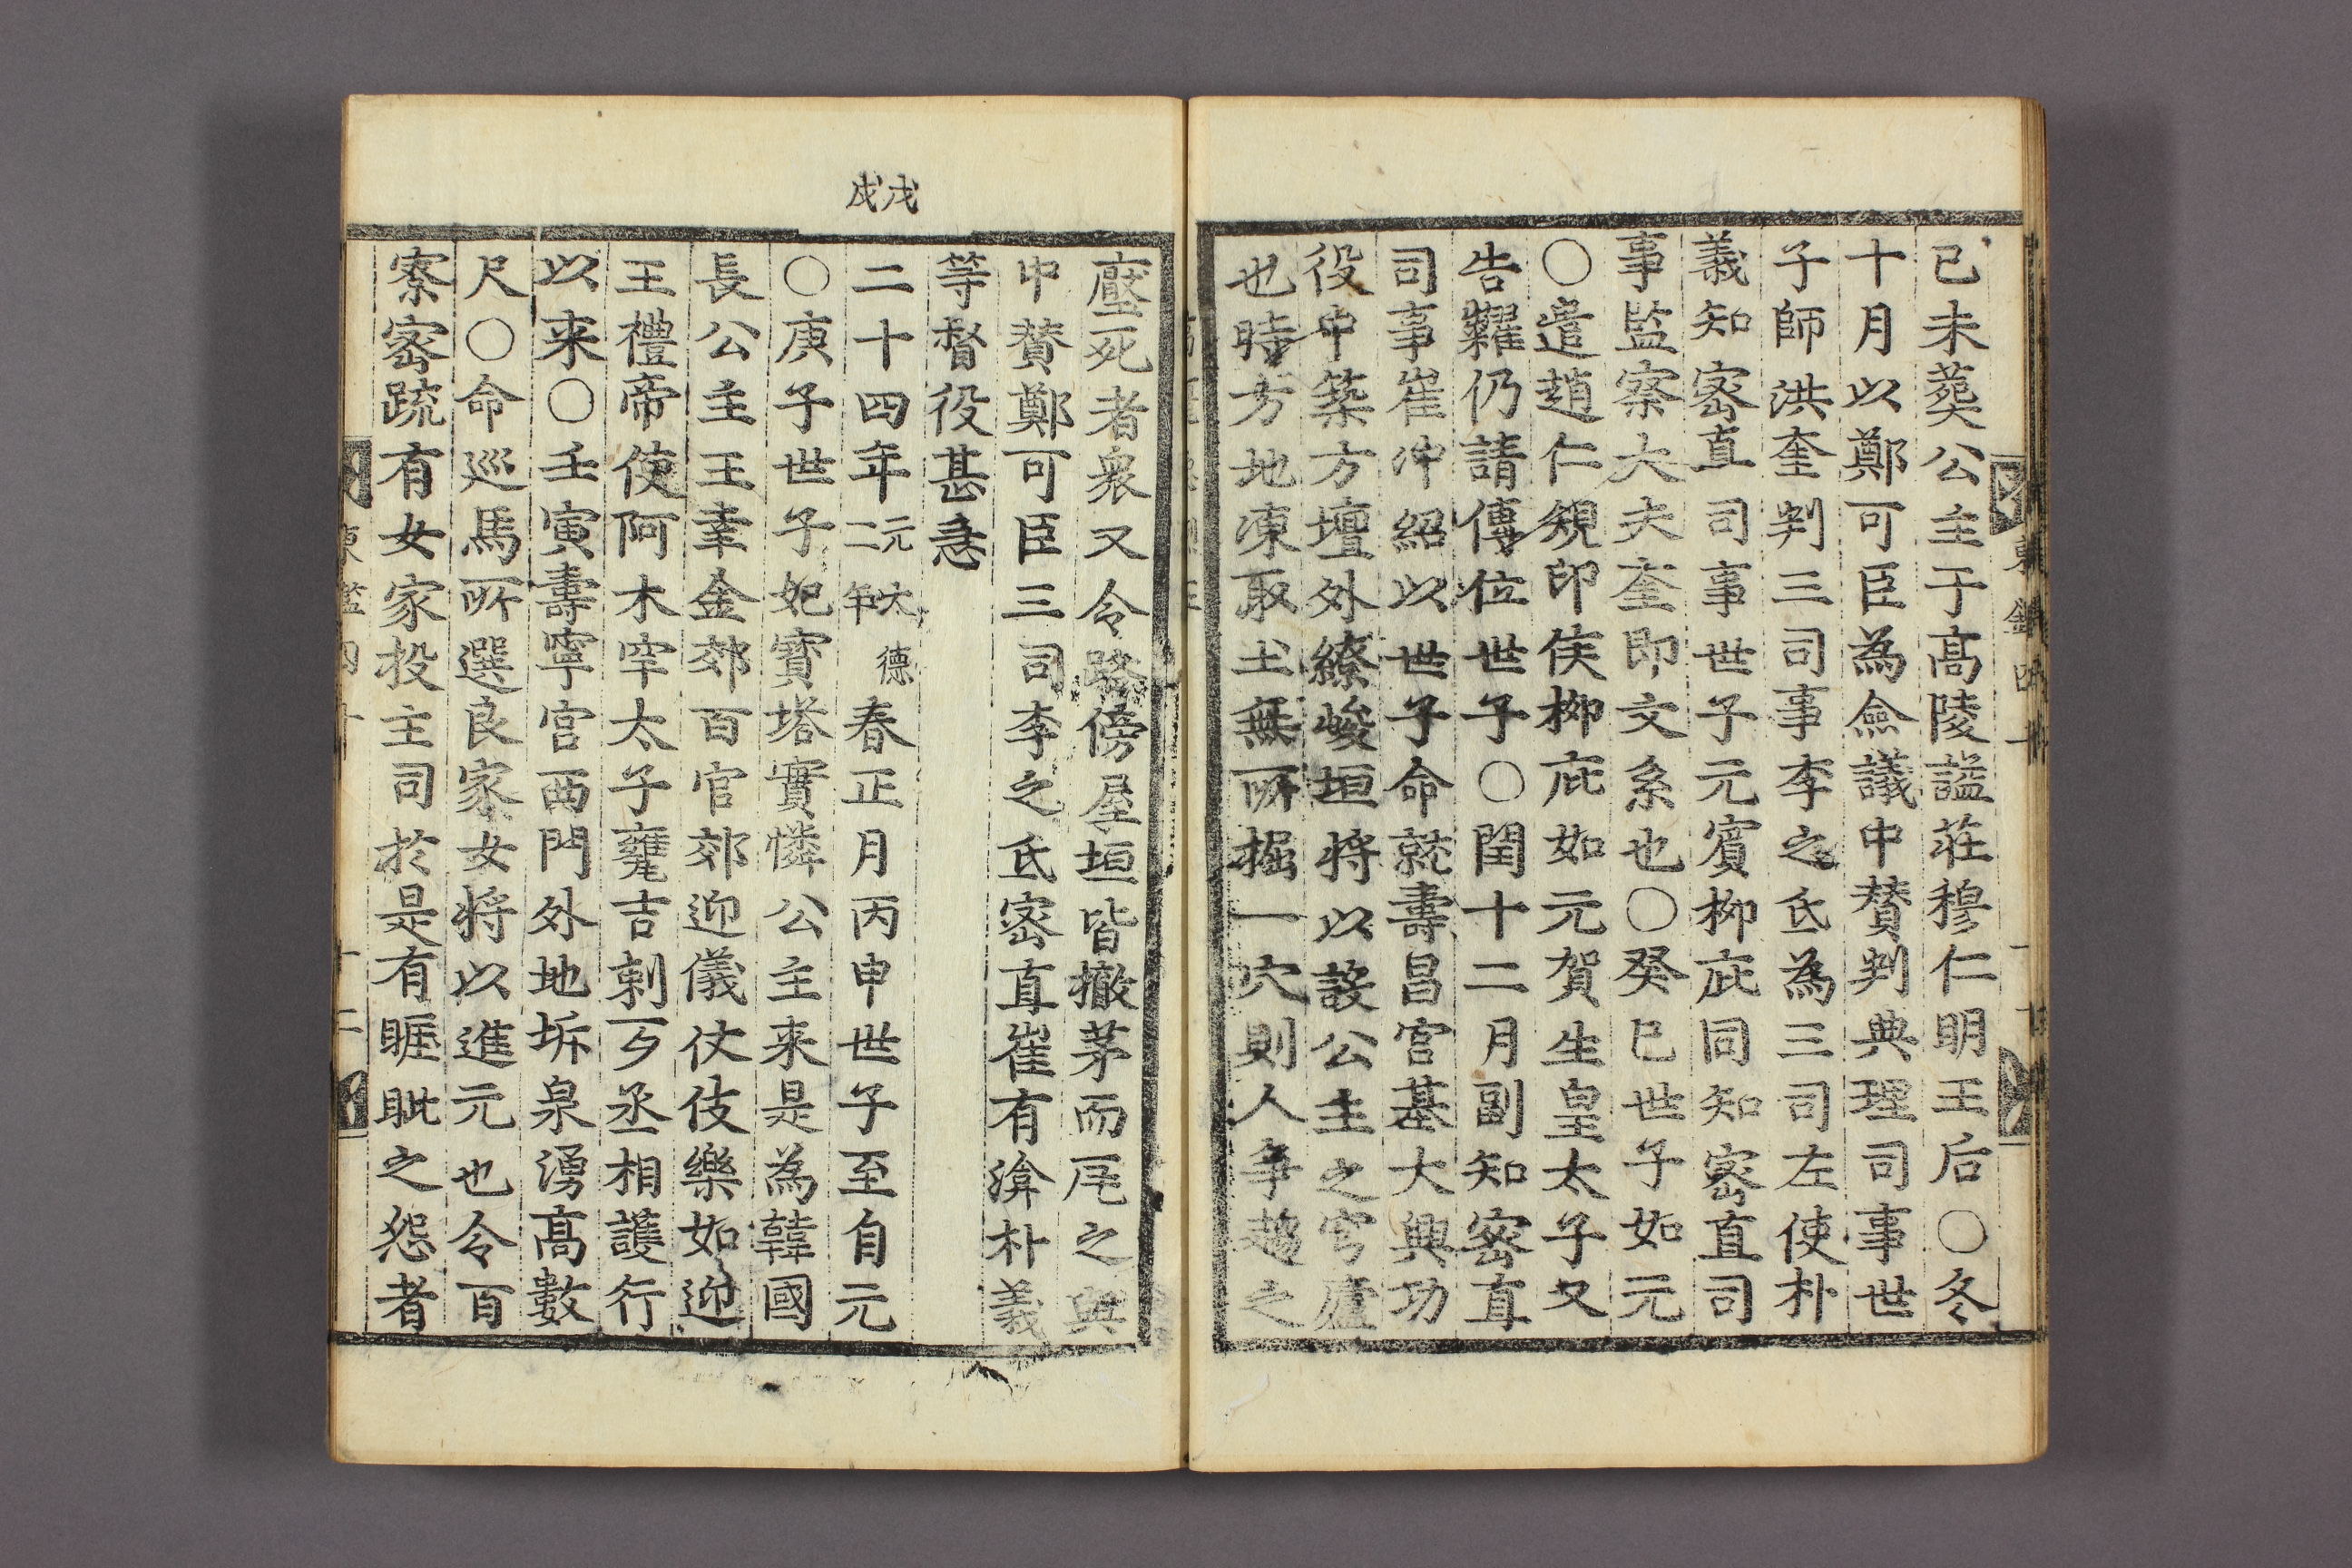 己未葬公主于高陵諡莊穆仁明王后○冬
十月以鄭可臣為僉議中賛判典理司事世
子師洪奎判三司事李之氐為三司左使朴
義知密直司事世子元賓柳庇同知密直司
事監察大夫奎即文系也○癸巳世子如元
○遣趙仁規印侯柳庇如元賀生皇太子又
告糶仍請傳位世子○閏十二月副知密直
司事崔冲紹以世子命就壽昌宮基大興功
役中築方壇外繚峻垣將以設公主之穹廬
也時方地凍取土無所掘一穴則人爭趍之
壓死者衆又令路傍屋垣皆撤茅而瓦之與
中賛鄭可臣三司李之氐密直崔有渰朴義
等督役甚急
戊戌
二十四年元大德二年春正月丙申世子至自元
○庚子世子妃寶塔實憐公主来是為韓國
長公主王幸金郊百官郊迎儀仗伎樂如迎
王禮帝使阿木罕太子甕吉剌歹丞相護行
以来○壬寅壽寧宮西門外地坼泉湧高數
尺○命巡馬所選良家女將以進元也令百
寮密䟽有女家投主司於是有睚眦之怨者
東鑑四十
十二